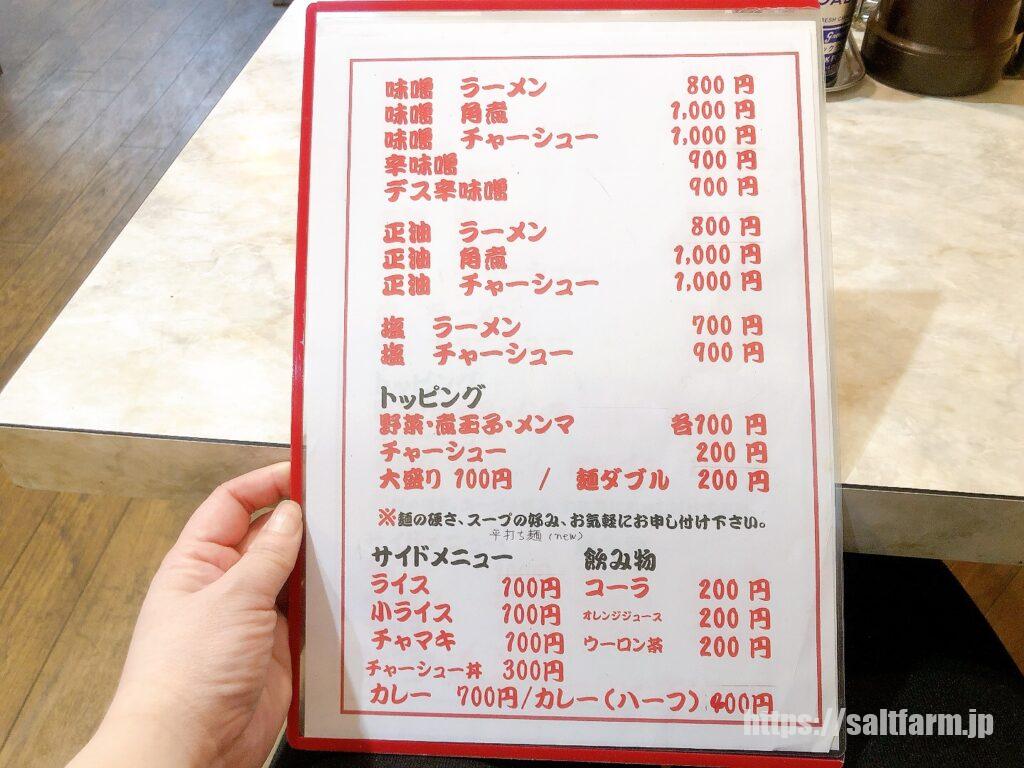 味噌　ラーメン　800 円
味噌　角煮　1,000 円
味噌　チャーシュー　1,000 円
辛味噌　900 円
デス辛味噌　900 円
正油　ラーメン　800 円
正油　角煮　1,000 円
正油　チャーシュー　1,000 円
塩　ラーメン　700 円
塩　チャーシュー　900 円
トッピング
野菜・煮玉子・メンマ　各100 円
チャーシュー　200 円
大盛り 100円　/　麺ダブル　200 円
※麺の硬さ、スープの好み、お気軽にお申し付け下さい。
平打ち麺 (new)
サイドメニュー　飲み物
ライス　100円　コーラ　200 円
小ライス　100円　オレンジジュース　200 円
チャマキ　100円　ウーロン茶　200 円
チャーシュー丼　300円
カレー　700円/カレー(ハーフ) 400円
https://saltfarm.jp